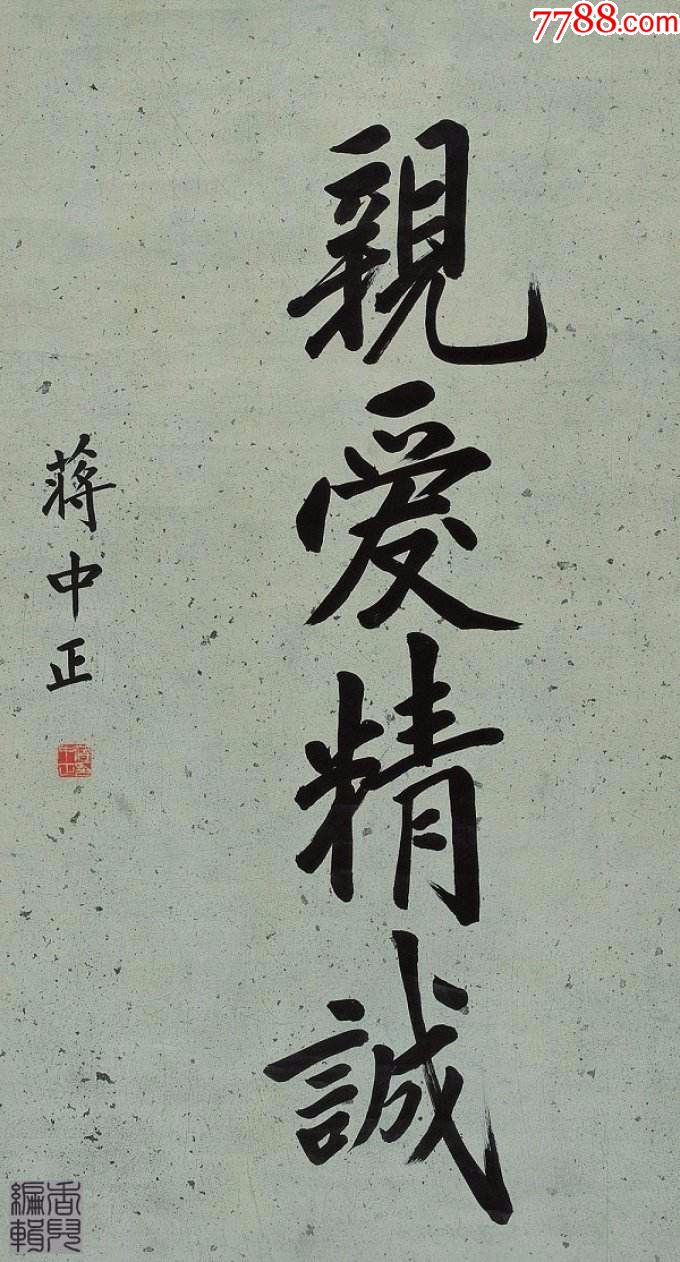 7788.com
親愛精誠
蔣中正